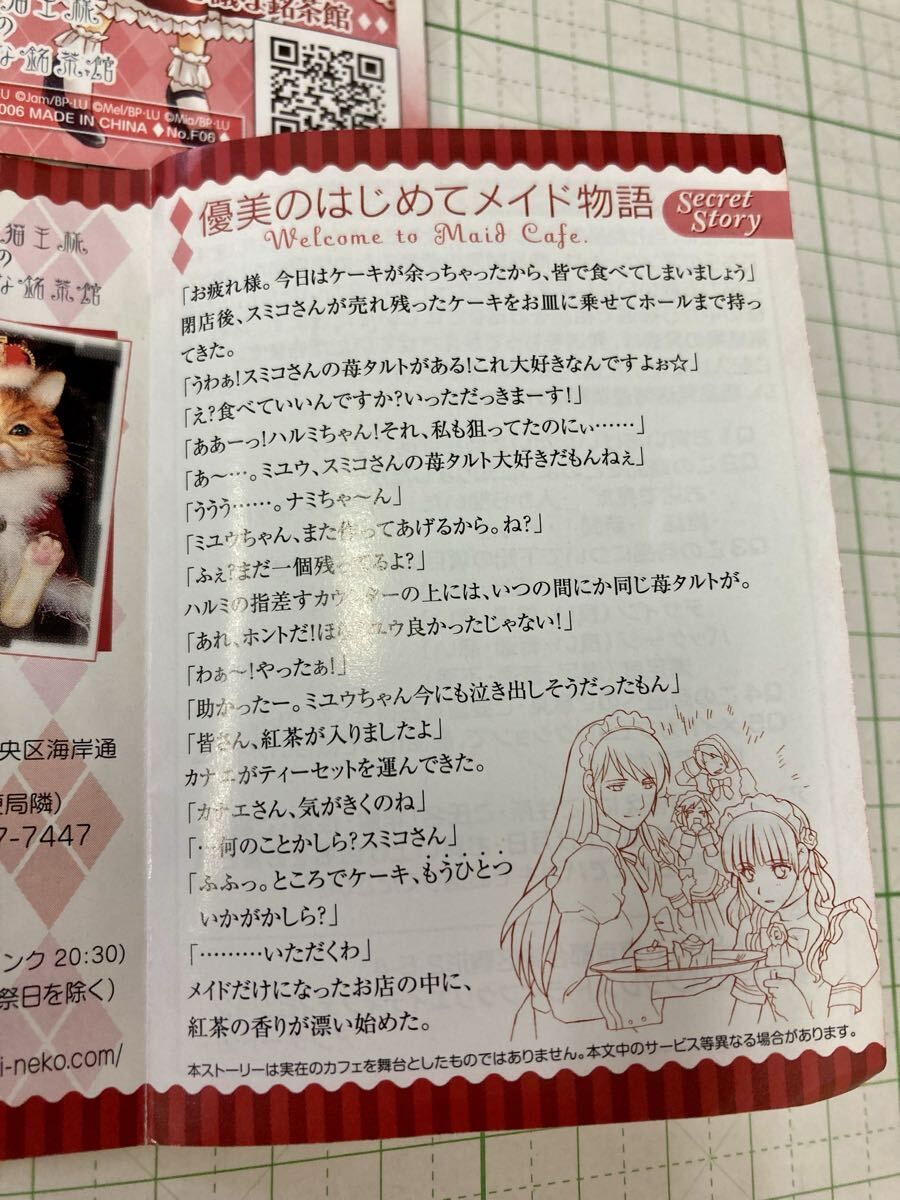 議な銘茶館
猫王様
の
な銘茶館
©Jam/BP·LU ©Mel/BP·LU ©Mia/BP·LU
006 MADE IN CHINA ◆No.F06
猫王様
の
な銘茶館
央区海岸通
局隣)
7-7447
ンク 20:30)
祭日を除く)
i-neko.com/
優美のはじめてメイド物語
Secret Story
Welcome to Maid Cafe.
「お疲れ様。今日はケーキが余っちゃったから、皆で食べてしまいましょう」
閉店後、スミコさんが売れ残ったケーキをお皿に乗せてホールまで持っ
てきた。
「うわぁ!スミコさんの苺タルトがある!これ大好きなんですよぉ☆」
「え?食べていいんですか?いっただっきまーす!」
「ああーっ!ハルミちゃん!それ、私も狙ってたのにぃ……」
「あ〜…。ミユウ、スミコさんの苺タルト大好きだもんねぇ」
「ううう……。ナミちゃ〜ん」
「ミユウちゃん、また作ってあげるから。ね?」
「ふぇ?まだ一個残ってるよ?」
ハルミの指差すカウンターの上には、いつの間にか同じ苺タルトが。
「あれ、ホントだ!ほらミユウ良かったじゃない!」
「わぁ〜!やったぁ!」
「助かったー。ミユウちゃん今にも泣き出しそうだったもん」
「皆さん、紅茶が入りましたよ」
カナエがティーセットを運んできた。
「カナエさん、気がきくのね」
「…何のことかしら?スミコさん」
「ふふっ。ところでケーキ、もうひとつ
いかがかしら?」
「………いただくわ」
メイドだけになったお店の中に、
紅茶の香りが漂い始めた。
本ストーリーは実在のカフェを舞台としたものではありません。本文中のサービス等異なる場合があります。